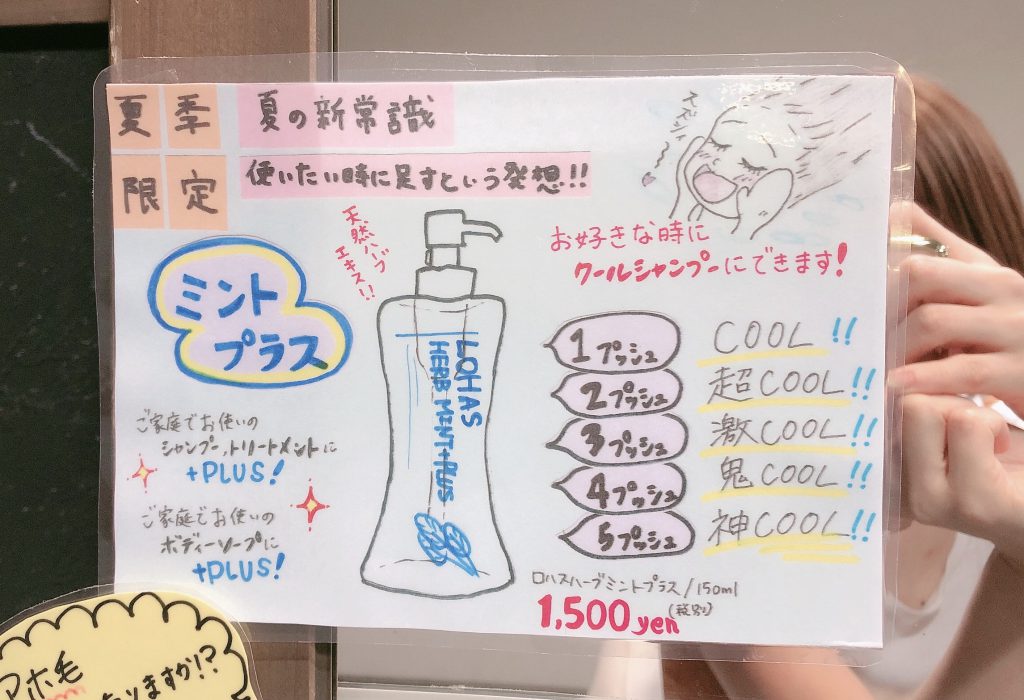 夏季
限定
夏の新常識
使いたい時に足すという発想!!
天然ハーブ
エキス!!
お好きな時に
クールシャンプーにできます!
ミント
プラス
LOHAS
HERB MINT+PLUS
1プッシュ COOL!!
2プッシュ 超COOL!!
3プッシュ 激COOL!!
4プッシュ 鬼COOL!!
5プッシュ 神COOL!!
ご家庭でお使いの
シャンプー、トリートメントに
+PLUS!
ご家庭でお使いの
ボディーソープに
+PLUS!
ロハスハーブミントプラス/150ml
1,500yen(税別)
アホ毛
ありますか!?